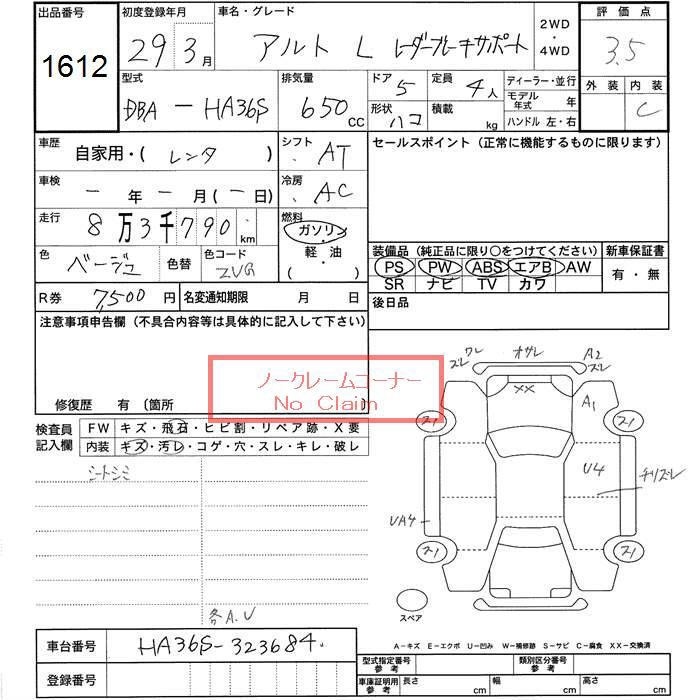 出品番号 初度登録年月 車名・グレード 2WD・4WD 評価点
1612 29 3月 アルト L レーダーブレーキサポート 3.5
型式 排気量 ドア 5 定員 4人 ディーラー・並行 外装 内装
DBA-HA36S 650 CC 形状 ハコ 積載 kg モデル年式 年 C
ハンドル 左・右
車歴 自家用・( レンタ ) シフト AT セールスポイント (正常に機能するものに限ります)
車検 ー年ー月(ー日) 冷房 AC
走行 8万3千790 km 燃料 ガソリン 軽・油 ( )
色 ベージュ 色替 色コード ZVG
装備品 (純正品に限り〇をつけてください) 新車保証書
PS PW ABS エアB AW 有・無
SR ナビ TV カワ
R券 7,500円 名変通知期限 月 日 後日品
注意事項申告欄 (不具合内容等は具体的に記入して下さい)
ノークレームコーナー
No Claim
修復歴 有 (箇所 )
検査員記入欄 FW キズ・飛石・ヒビ割・リペア跡・X要
内装 キズ・汚レ・コゲ・穴・スレ・キレ・破レ
シートシミ
各A.U
ワレ ズレ オサレ A2 ズレ
XX
A1
スI スI
U4 チリズレ
UA4
スI スI
スペア
A-キズ E-エクボ U-凹み W-補修跡 S-サビ C-腐食 XX-交換済
車台番号 HA36S-323684
登録番号
型式指定番号 参考 類別区分番号 参考
車庫証明用 参考 長さ cm 幅 cm 高さ cm